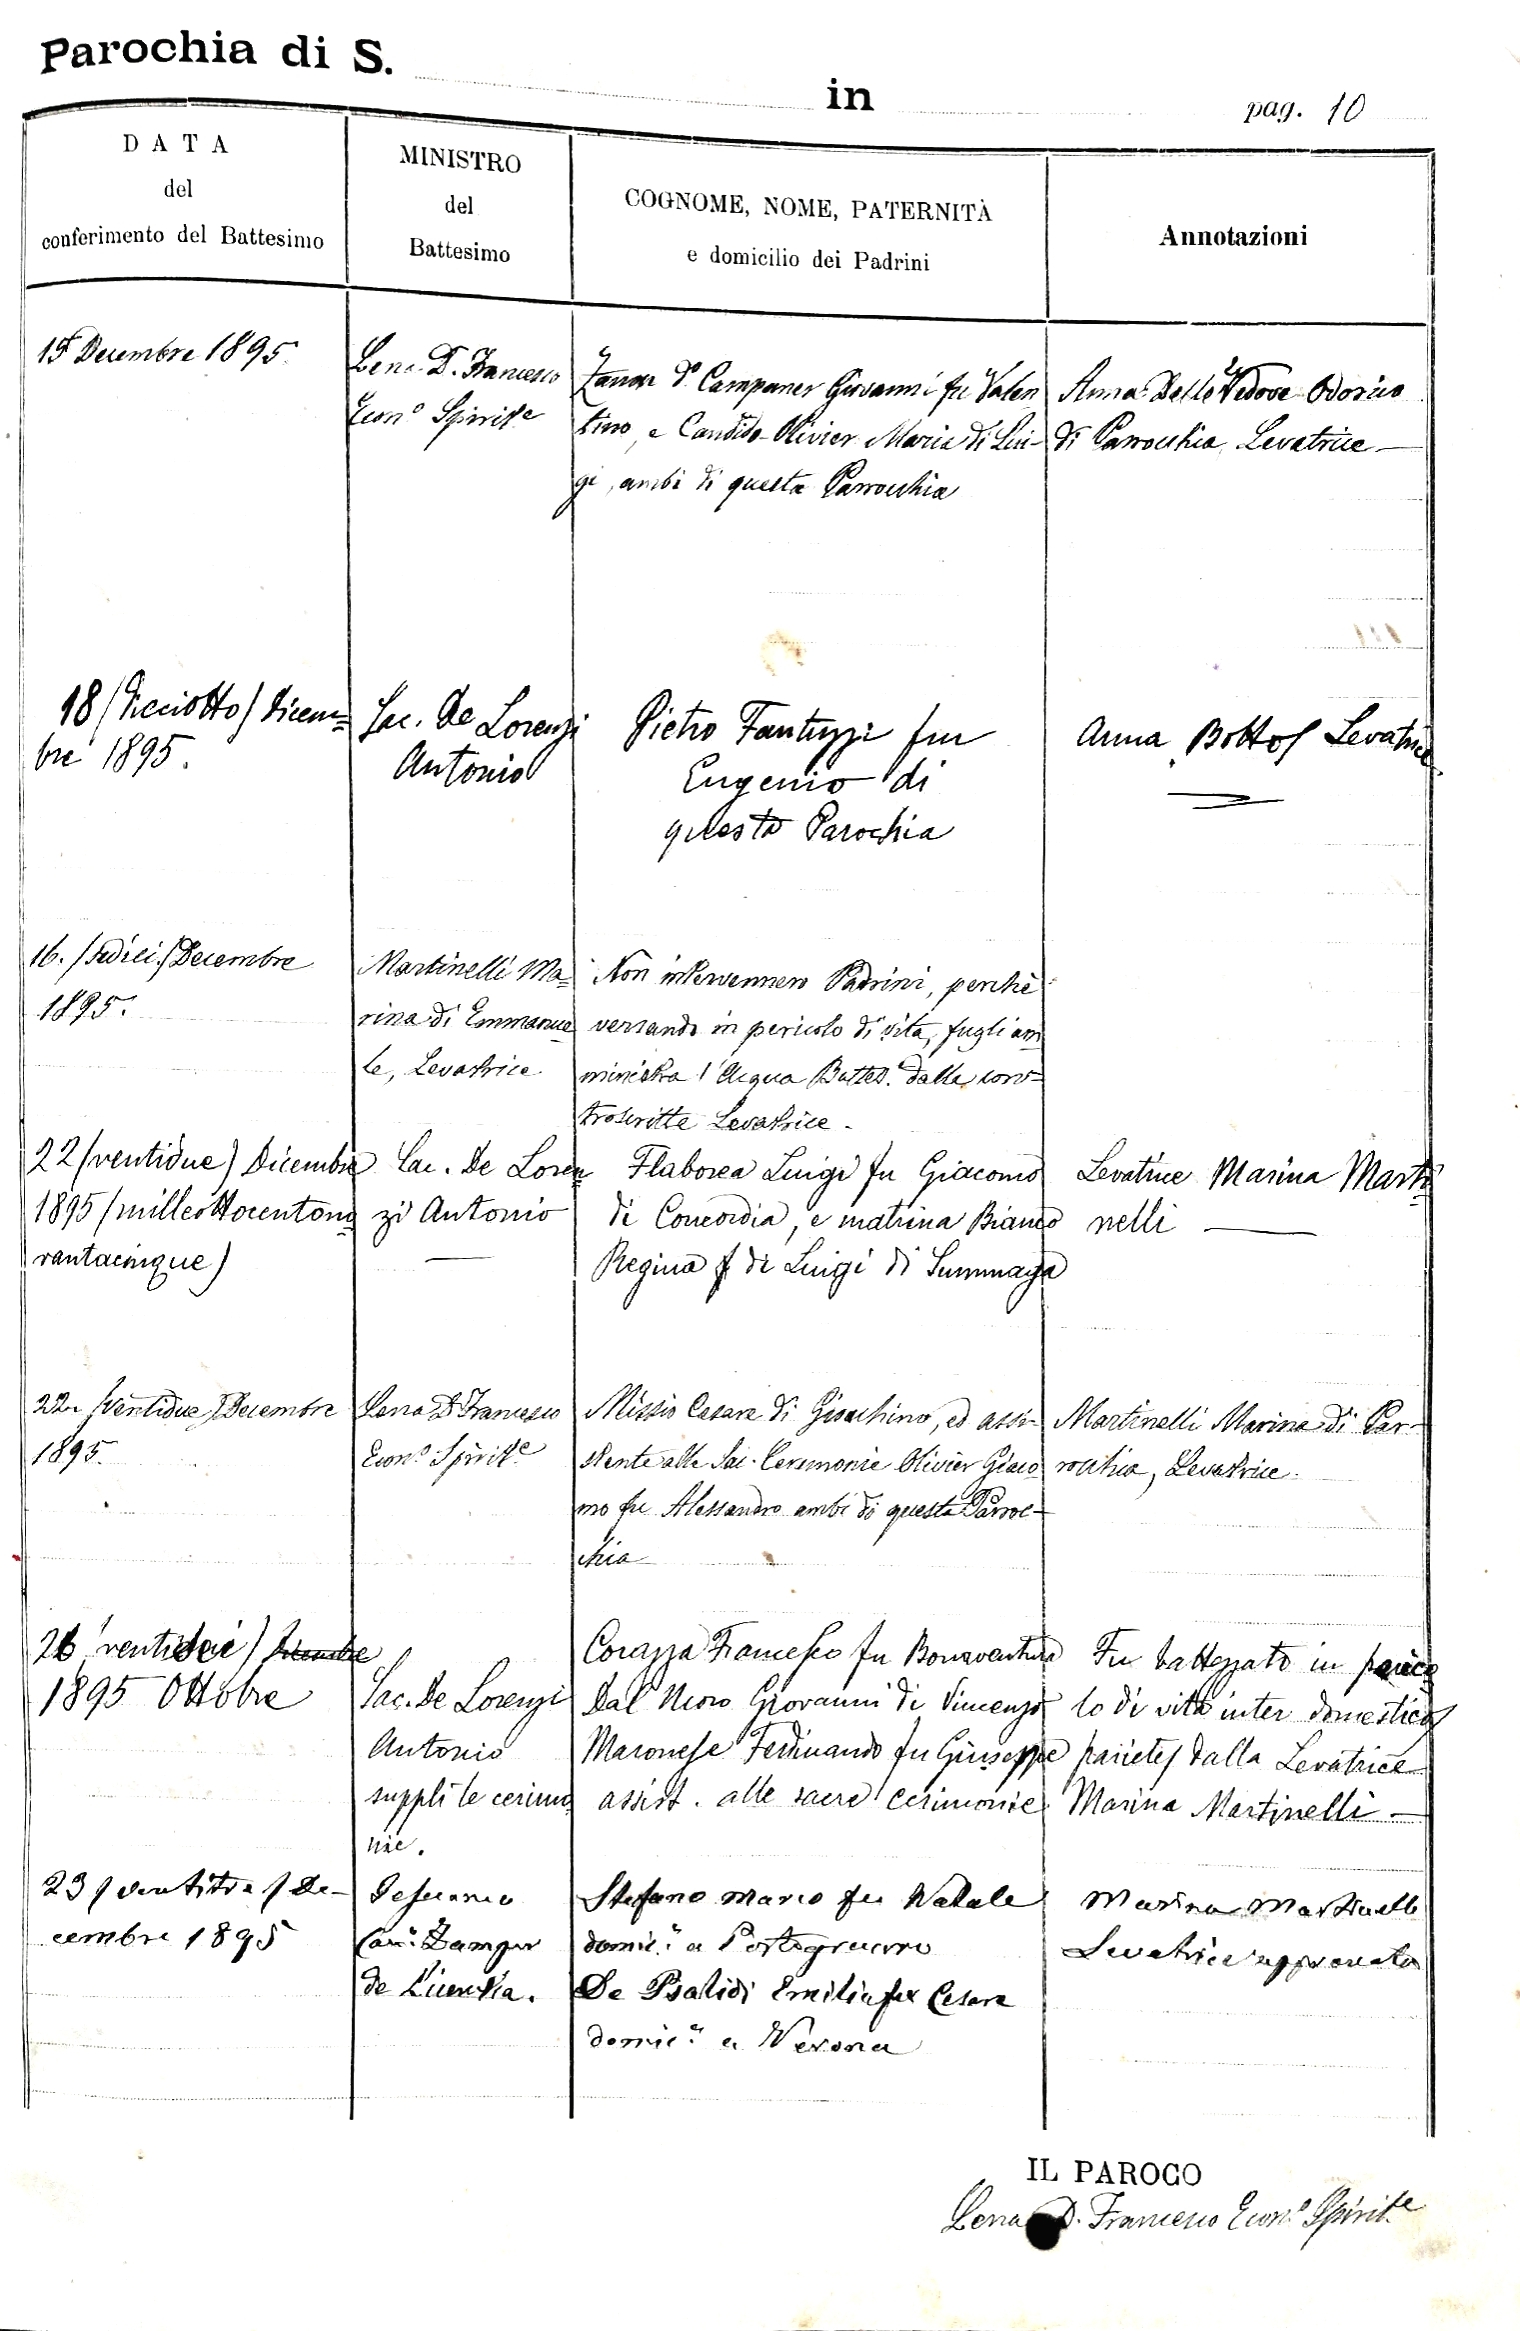 Parochia di S.
in
pag. 10
DATA
del
conferimento del Battesimo
MINISTRO
del
Battesimo
COGNOME, NOME, PATERNITÀ
e domicilio dei Padrini
Annotazioni
15 Decembre 1895
Lena D. Francesco
Econº Spirite
Campaner Giovanni fu Valen
tino, e Candido-Olivier Maria di Lui-
gi, ambi di questa Parrocchia
Anna Delle Vedove Odorico
di Parrocchia, Levatrice —
18 (dieciotto) Dicem=
bre 1895.
Sac. De Lorenzi
Antonio
Pietro Fantuzzi fu
Eugenio di
questa Parochia
Anna Bottos Levatrice
16. /sedici/ Decembre
1895.
Martinelli Ma=
rina di Emmanue
le, Levatrice
Non intervennero Padrini, perchè
versando in pericolo di vita, fugli am
ministra l'Acqua Battes. dalla con=
troscritta Levatrice.
22 (ventidue) Dicembre
1895 (milleottocentono
vantacinque)
Sac. De Loren
zi Antonio
Flaborea Luigi fu Giacomo
di Concordia, e matrina Bianco
Regina f di Luigi di Summaga
Levatrice Marina Marti
nelli —
22 /Ventidue/ Decembre
1895.
Lena D. Francesco
Econº Spirite
Missio Cesare di Gioachino, ed assi-
stente alle Sac. Ceremonie Olivier Giaco
mo fu Alessandro ambi di questa Parroc-
chia
Martinelli Marina di Par-
rocchia, Levatrice.
26 ventisei) Dicembre
1895 Ottobre
Sac. De Lorenzi
Antonio
supplì le cerimo
nie.
Corazza Francesco fu Bonaventura
Dal Moro Giovanni di Vincenzo
Maronese Ferdinando fu Giuseppe
assist. alle sacre cerimonie
Fu battezzato in perico
lo di vita inter domesticos
parietes dalla Levatrice
Marina Martinelli —
23 / ventitre / De-
cembre 1895
Can.
de Licentia.
Stefano Marco fu Natale
domic.º a Portogruaro
De Psalidi Emilia fu Cesare
domic.ª a Verona
Marina Martinelli
Levatrice approvata
IL PAROCO
Lena D. Francesco Econº Spirite